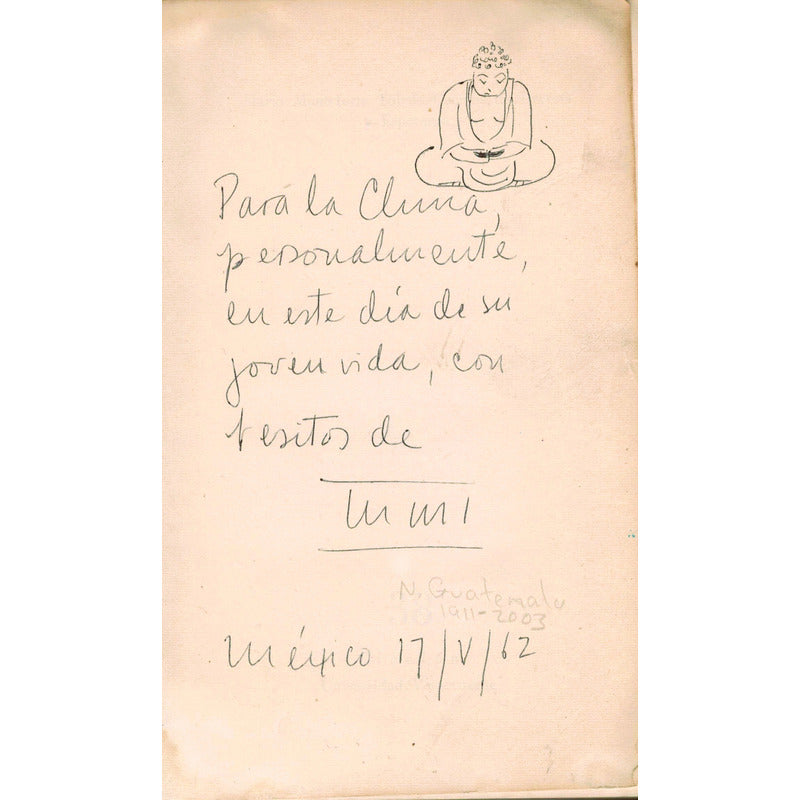 Para la China,
personalmente,
en este día de su
joven vida, con
besitos de
N. Guatemala
1911-2003
México 17/V/62